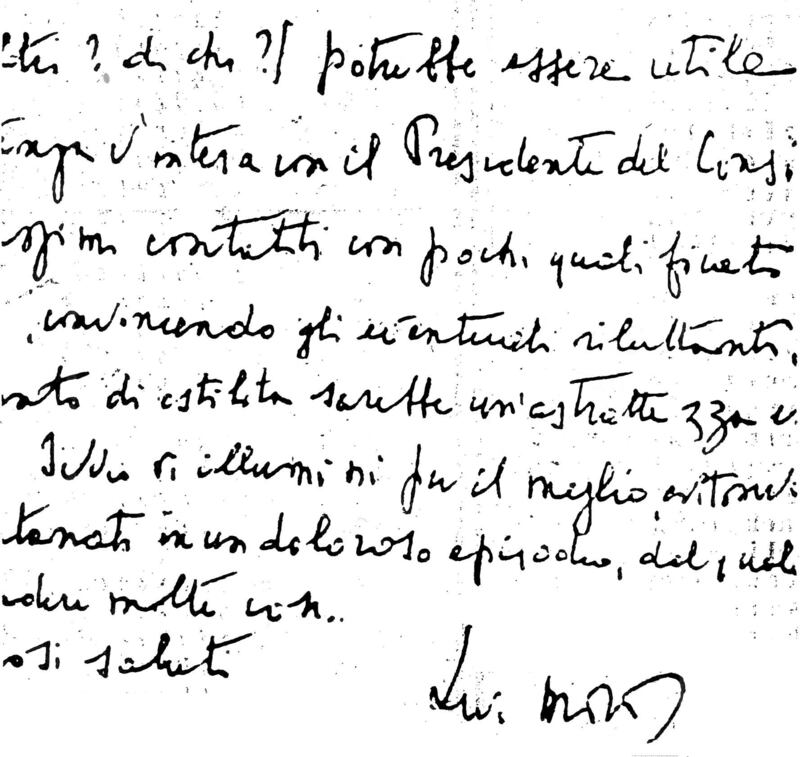 ltri? di chi?) potrebbe essere utile
enga d'intesa con il Presidente del Consi
ssimi contatti con pochi qualificati
, convincendo gli eventuali riluttanti.
mento di ostilità sarebbe un'astrattezza e
Iddio vi illumini per il meglio, evitando
tanati in un doloroso episodio, dal quale
ndere molte cose.
osi saluti
Moro